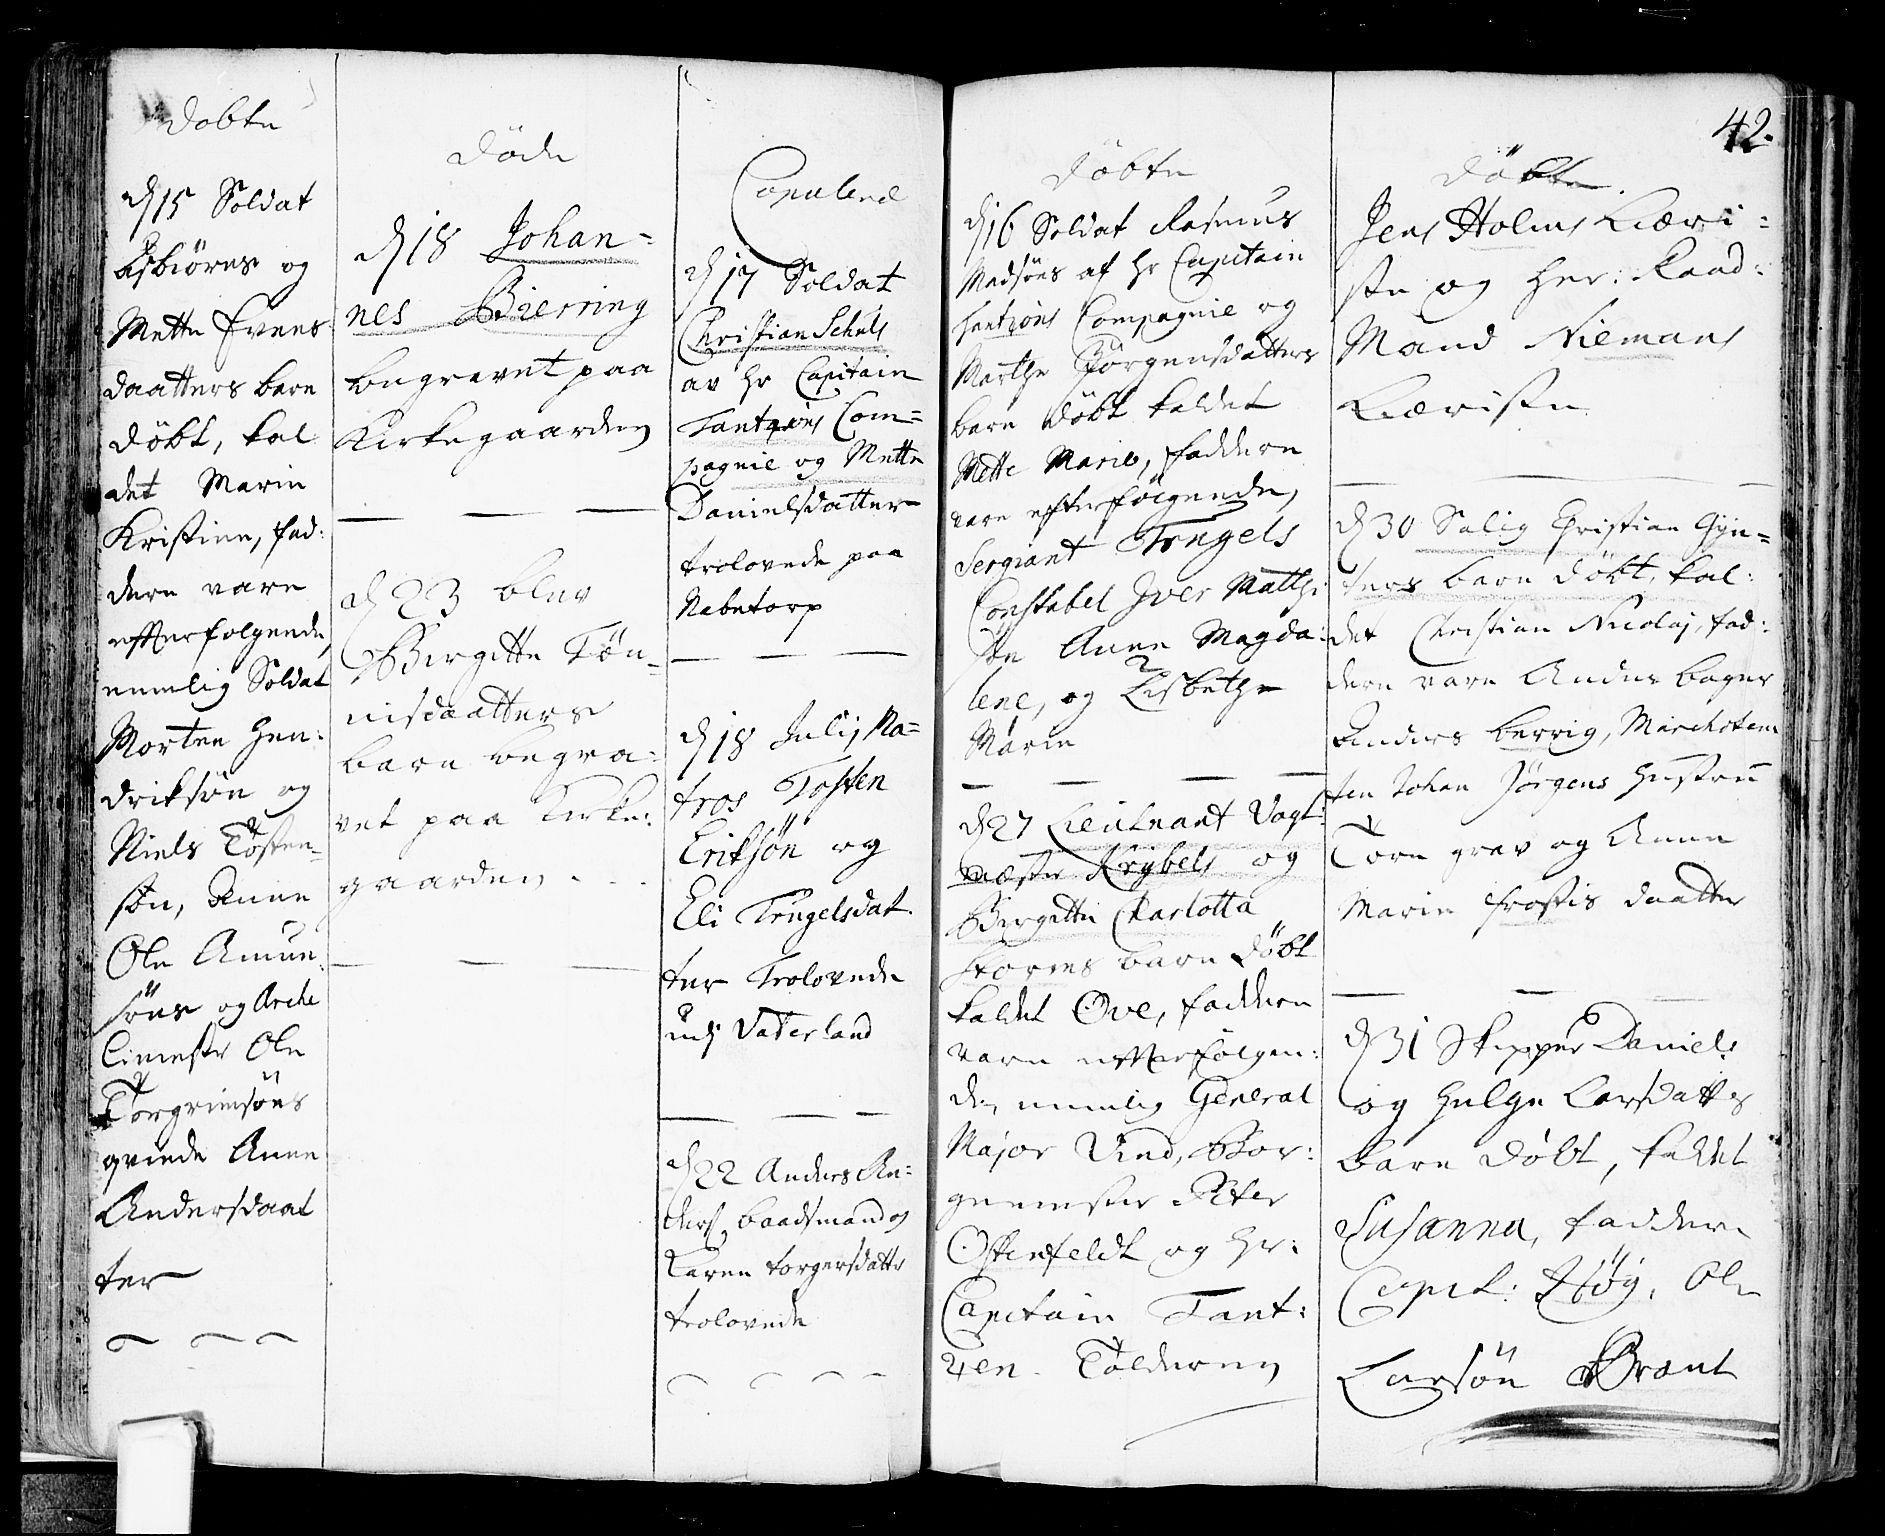 Döbte
d 15 Soldat
Asbiörns og
Mette Evens
daatters barn
döbt, kal
det Marin
Kristine, fad:
dere vare
efterfolgende,
nemlig Soldat
Morten Hen:
driksön og
Niels Tosten-
sön, Anne
Ole Amun:
söns og Arche
limestr Ole
Torgrimsöns
qvinde Anne
Andersdaat
ter
Döde
d 18 Johan-
nes Bierring
begravet paa
Kirkegaarden
d 23 blev
Birgitte Tön-
nisdaatters
barn begra:
vet paa Kirke:
gaarden
Copuleret
d 17 Soldat
Christian Schuls
av Hr Capitain
Tantzöns Com=
pagnie og Mette
Danielsdatter
trolovede paa
Nabetorp
d 18 Julij Ma=
tros Tosten
Eriksön og
Eli Trugelsdat
ter Trolovede
udj Vaterland
d 22 Anders An:
ders, baadsmand og
Karen Torgersdattr
trolovede
Döbte
d 16 Soldat Rasmus
Madsöns af Hr Capitain
Tantzöns Compagnie og
Marthe Börgensdatters
barn döbt kaldet
Mette Marie, faddere
vare efterfölgende,
Sergiant Trugels
Constabel Iver Matthi
sön Anne Magda:
lene, og Lisbethe
Marie
d 27 Lieutnant Vagt:
mæster Krybels og
Birgitte Charlotta
Storms barn döbt
kaldet Ove, faddere
vare efterfölgen:
de, nemlig General
Major Vind, Bor:
gemester Peter
Ostenfeldt og Hr:
Capitain Tant:
zen. Tolderen
42.
Döbte
Jens Holms Kieri:
ste og Her: Raad:
Mand Niemans
Kieriste
d 30 Salig Christian Gyn=
ters barn döbt, kal:
det Christian Nicolaj, fad:
dere vare Anders bager
Anders berrig, Marcheten
ter Johan Jörgens Hustru
Torn grav og Anne
Marie Frostis daatter
d 31 Skipper Daniels
og Helge Larsdatters
barn döbt, kaldet
Susanna, faddere
Capit: Höy, Ole
Larsön Brant